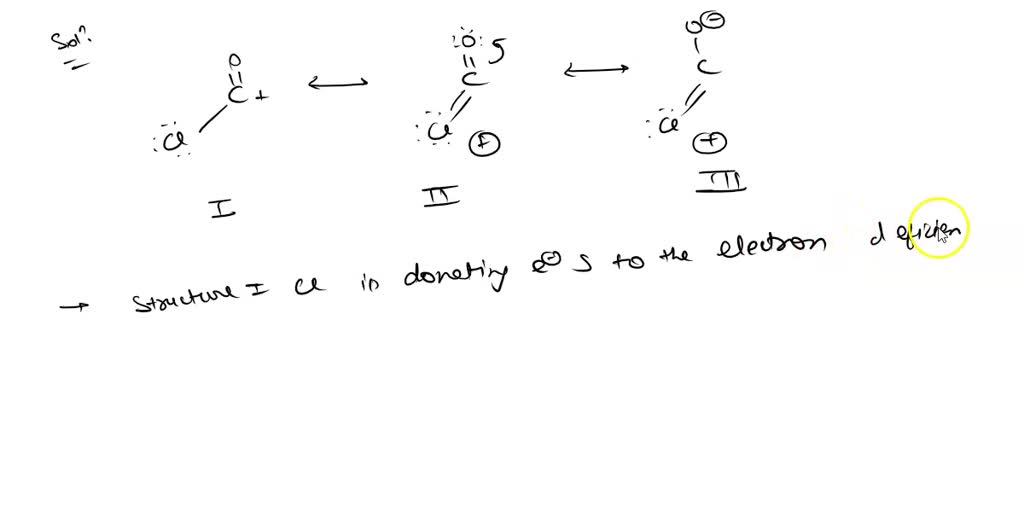 Soln.
O
C +
:Cl
I
:O: 5
C
:Cl +
II
O⊖
C
:Cl +
III
→ Structure I Cl is donating e⊖ s to the electron deficien